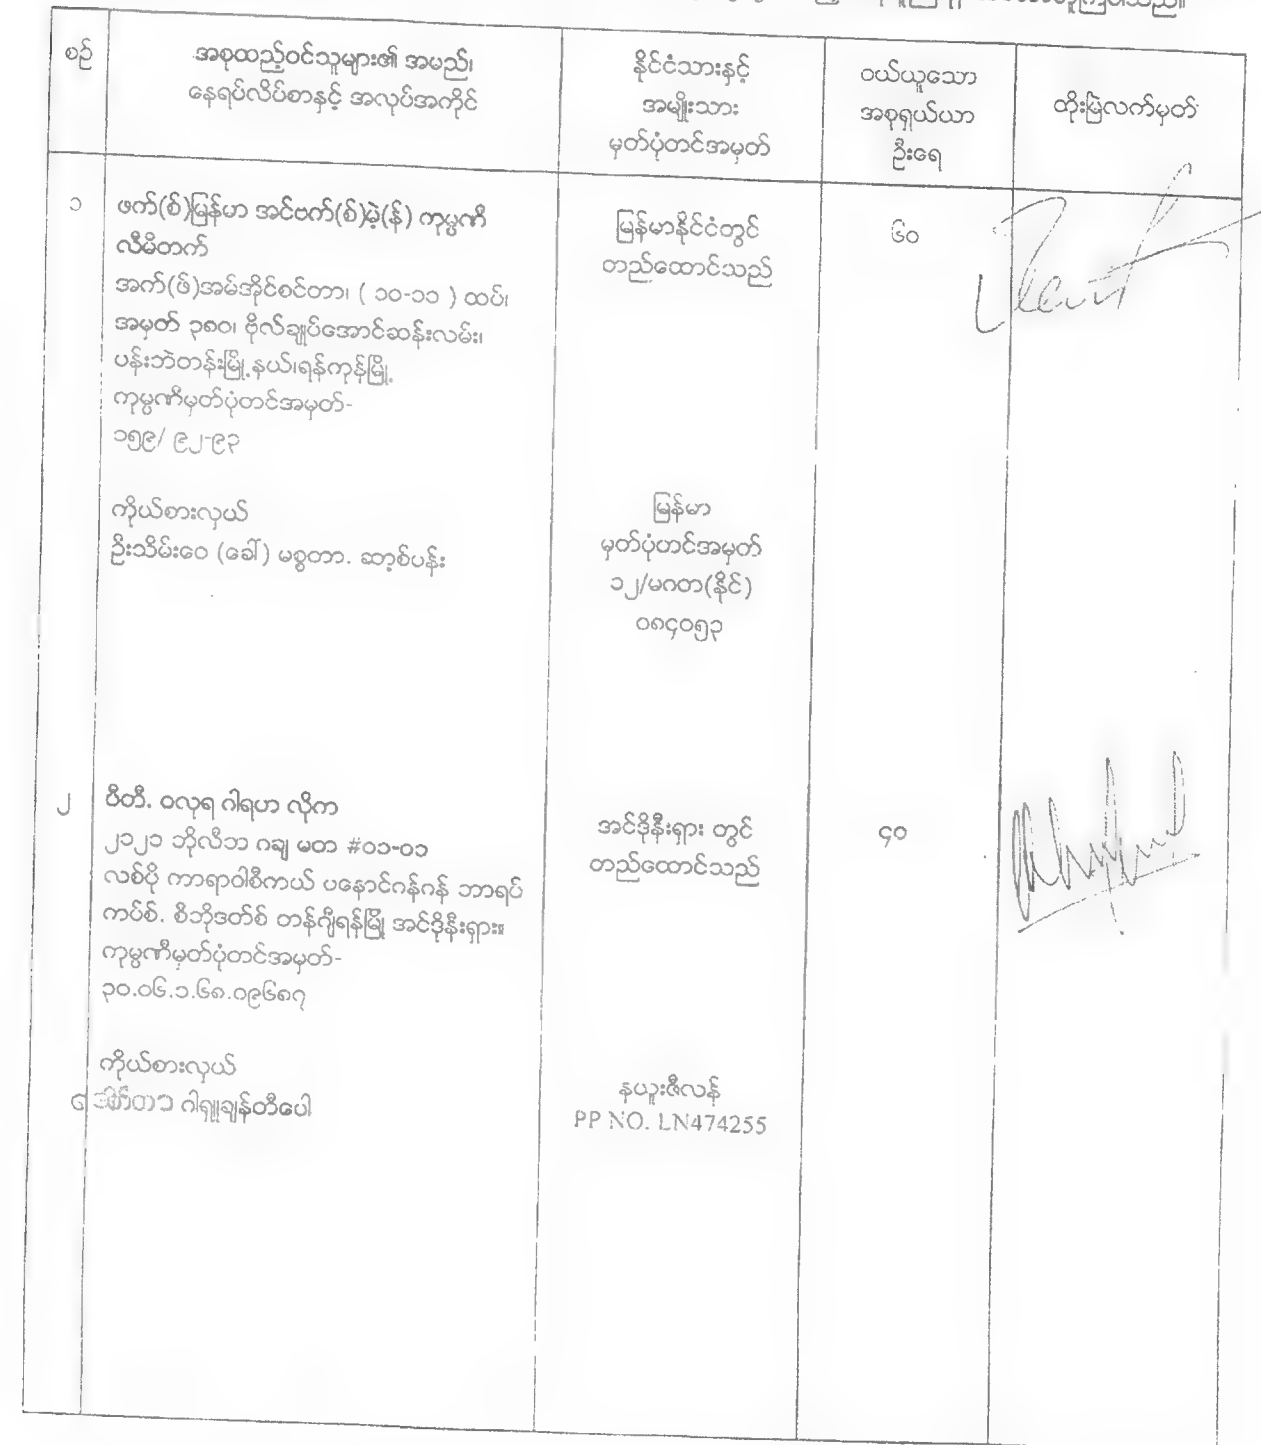 စဉ်
အစုထည့်ဝင်သူများ၏ အမည်၊
နေရပ်လိပ်စာနှင့် အလုပ်အကိုင်
နိုင်ငံသားနှင့်
အမျိုးသား
မှတ်ပုံတင်အမှတ်
ဝယ်ယူသော
အစုရှယ်ယာ
ဦးရေ
ထိုးမြဲလက်မှတ်
၁
ဖက်(စ်)မြန်မာ အင်ဗက်(စ်)မဲ့(န်) ကုမ္ပဏီ
လီမိတက်
အက်(ဖ်)အမ်အိုင်စင်တာ၊ ( ၁၀-၁၁ ) ထပ်၊
အမှတ် ၃၈၀၊ ဗိုလ်ချုပ်အောင်ဆန်းလမ်း၊
ပန်းဘဲတန်းမြို့နယ်၊ရန်ကုန်မြို့
ကုမ္ပဏီမှတ်ပုံတင်အမှတ်-
၁၅၉/ ၉၂-၉၃
မြန်မာနိုင်ငံတွင်
တည်ထောင်သည်
၆၀
ကိုယ်စားလှယ်
ဦးသိမ်းဝေ (ခေါ်) မစ္စတာ. ဆာ့စ်ပန်း
မြန်မာ
မှတ်ပုံတင်အမှတ်
၁၂/မဂတ(နိုင်)
၀၈၄၀၅၃
၂
ပီတီ. ဝလုရ ဂါရဟ လိုက
၂၁၂၁ ဘိုလီဘ ဂချ မတ #၀၁-၀၁
လစ်ပို ကာရာဝါစီကယ် ပနောင်ဂန်ဂန် ဘာရပ်
ကပ်စ်. စီဘိုဒတ်စ် တန်ဂျီရန်မြို့ အင်ဒိုနီးရှား။
ကုမ္ပဏီမှတ်ပုံတင်အမှတ်-
၃၀.၀၆.၁.၆၈.၀၉၆၈၇
အင်ဒိုနီးရှား တွင်
တည်ထောင်သည်
၄၀
ကိုယ်စားလှယ်
ဒေါက်တာ ဂါရှူချန်တီပေါ
နယူးဇီလန်
PP NO. LN474255